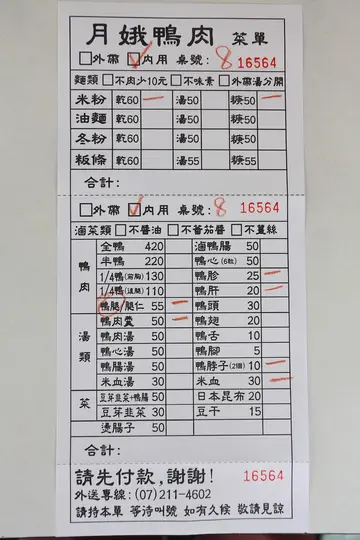 月娥鴨肉 菜單
□外帶 ☑內用 桌號: 8 16564
麵類 □不肉少10元 □不味素 □外帶湯分開
米粉 乾60 一 湯50 糖50 一
油麵 乾60 湯50 糖50
冬粉 乾60 湯50 糖50
粄條 乾60 湯55 糖55
合計:
□外帶 ☑內用 桌號: 8 16564
滷菜類 □不醬油 □不蕃茄醬 □不薑絲
鴨肉 全鴨 420 滷鴨腸 50
半鴨 220 鴨心(6粒) 50
1/4鴨(前胸) 130 鴨胗 25 一
1/4鴨(後腿) 110 鴨肝 20 一
鴨腿/腿仁 55 一 鴨頭 30
湯類 鴨肉羹 50 一 鴨翅 20
鴨肉湯 50 鴨舌 10
鴨心湯 50 鴨腳 5
鴨腸湯 50 鴨脖子(2個) 10 一
米血湯 30 米血 30 一
菜 豆芽韭菜+鴨腸 50 日本昆布 20
豆芽韭菜 30 豆干 15
燙腸子 50
合計:
請先付款,謝謝! 16564
外送專線:(07)211-4602
請持本單 等待叫號 如有久候 敬請見諒